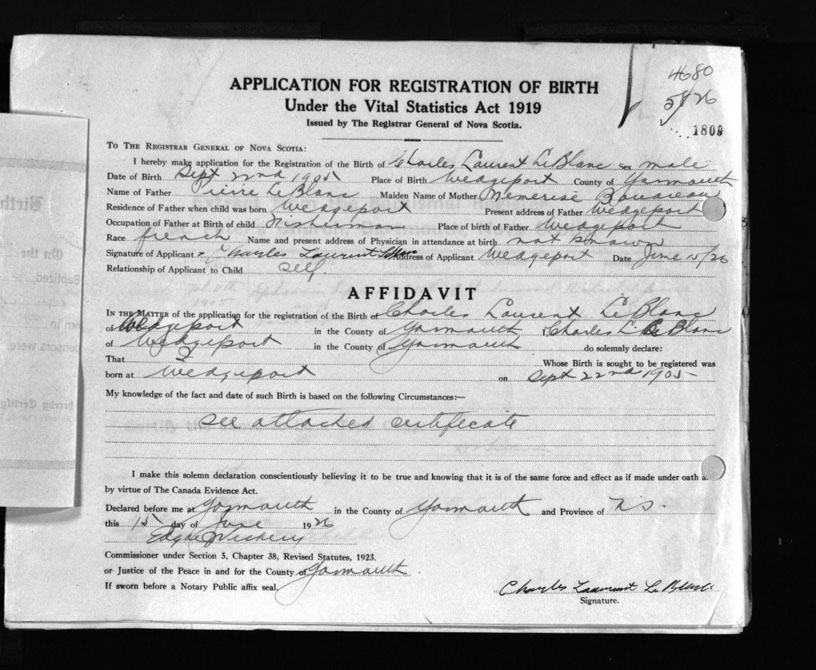 APPLICATION FOR REGISTRATION OF BIRTH
Under the Vital Statistics Act 1919
Issued by The Registrar General of Nova Scotia.
4680
5/26
1809
TO THE REGISTRAR GENERAL OF NOVA SCOTIA:
I hereby make application for the Registration of the Birth of Charles Laurent LeBlanc sex male
Date of Birth Sept 22nd 1905 Place of Birth Wedgeport County of Yarmouth
Name of Father Pierre LeBlanc Maiden Name of Mother Nemerise
Residence of Father when child was born Wedgeport Present address of Father Wedgeport
Occupation of Father at Birth of child Fisherman Place of birth of Father Wedgeport
Race french Name and present address of Physician in attendance at birth not known
Signature of Applicant Charles Laurent Address of Applicant Wedgeport Date June 15/26
Relationship of Applicant to Child self
AFFIDAVIT
IN THE MATTER of the application for the registration of the Birth of Charles Laurent LeBlanc
of Wedgeport in the County of Yarmouth I Charles L. LeBlanc
of Wedgeport in the County of Yarmouth do solemnly declare:
That I Whose Birth is sought to be registered was
born at Wedgeport on Sept 22nd 1905
My knowledge of the fact and date of such Birth is based on the following Circumstances:—
see attached certificate
I make this solemn declaration conscientiously believing it to be true and knowing that it is of the same force and effect as if made under oath
by virtue of The Canada Evidence Act.
Declared before me at Yarmouth in the County of Yarmouth and Province of N.S.
this 15 day of June 1926
Edgar
Commissioner under Section 5, Chapter 38, Revised Statutes, 1923.
or Justice of the Peace in and for the County of Yarmouth.
If sworn before a Notary Public affix seal.
Charles Laurent LeBlanc
Signature.